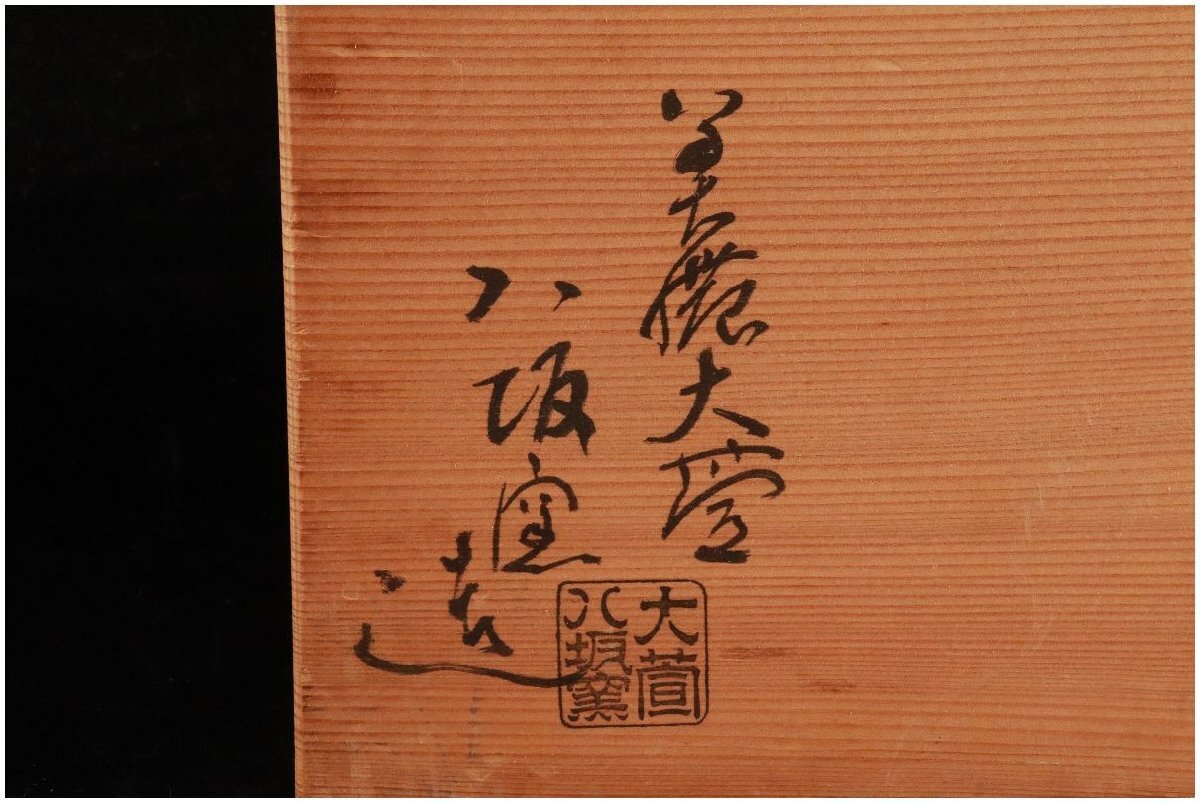 美濃大萱
八坂窯
造
大萱
八坂窯